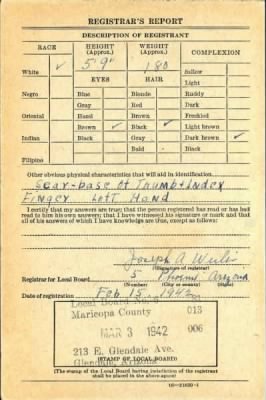 REGISTRAR'S REPORT
DESCRIPTION OF REGISTRANT
RACE
HEIGHT
(Approx.)
WEIGHT
(Approx.)
COMPLEXION
White ✓
5' 9"
180
Sallow
EYES
HAIR
Light
Negro
Blue
Blonde
Ruddy
Gray
Red
Dark
Oriental
Hazel
Brown
Freckled
Brown ✓
Black ✓
Light brown
Indian
Black
Gray
Dark brown ✓
Bald
Black
Filipino
Other obvious physical characteristics that will aid in identification
Scar-base of Thumb + Index
Finger Left Hand
I certify that my answers are true; that the person registered has read or has had
read to him his own answers; that I have witnessed his signature or mark and that
all of his answers of which I have knowledge are true, except as follows:
Joseph A
(Signature of registrar)
Registrar for Local Board 5 Phoenix Arizona
(Number) (City or county) (State)
Date of registration Feb 15, 1942
Local Board No.
Maricopa County 013
MAR 3 1942 006
213 E. Glendale Ave.
Glendale, Arizona
(STAMP OF LOCAL BOARD)
(The stamp of the Local Board having jurisdiction of the registrant
shall be placed in the above space)
16—21630-1